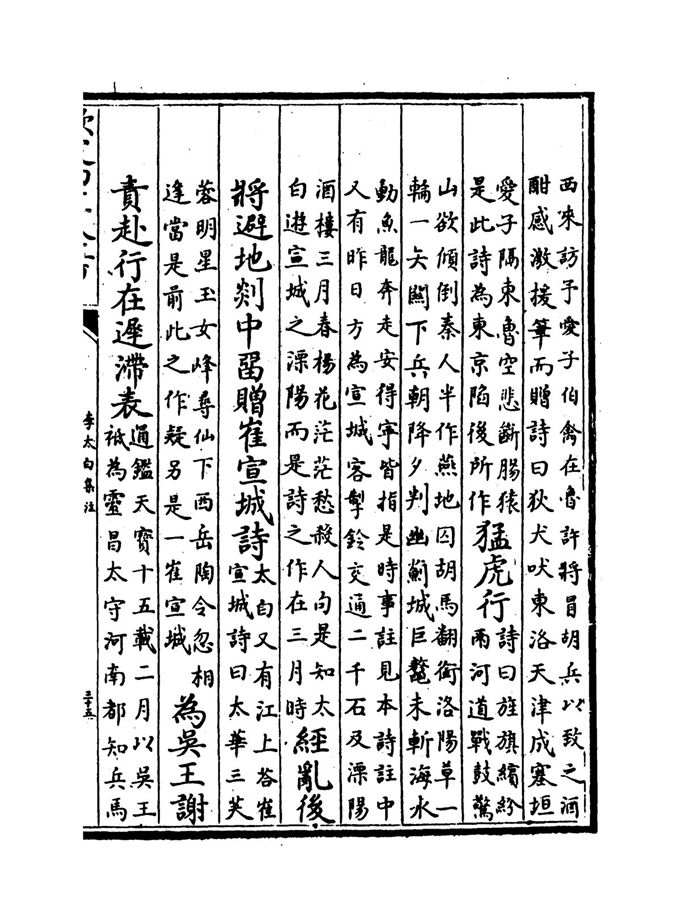 西來訪予愛子伯禽在魯許將冒胡兵以致之酒
酣感激援筆而贈詩曰狄犬吠東洛天津成塞垣
愛子隔東魯空悲斷腸猿
是此詩為東京陷後所作
猛虎行
詩曰旌旗繽紛
兩河道戰鼓驚
山欲傾倒秦人半作燕地囚胡馬翻銜洛陽草一
輸一失關下兵朝降夕判幽薊城巨鼇未斬海水
動魚龍奔走安得寧皆指是時事註見本詩註中
又有昨日方為宣城客掣鈴交通二千石及溧陽
酒樓三月春楊花茫茫愁殺人句是知太
白遊宣城之溧陽而是詩之作在三月時
經亂後
將避地剡中畱贈崔宣城詩
太白又有江上荅崔
宣城詩曰太華三芙
蓉明星玉女峰尋仙下西岳陶令忽相
逢當是前此之作疑另是一崔宣城
為吳王謝
責赴行在遲滯表
通鑑天寶十五載二月以吳王
祇為靈昌太守河南都知兵馬
李太白集注
三十五